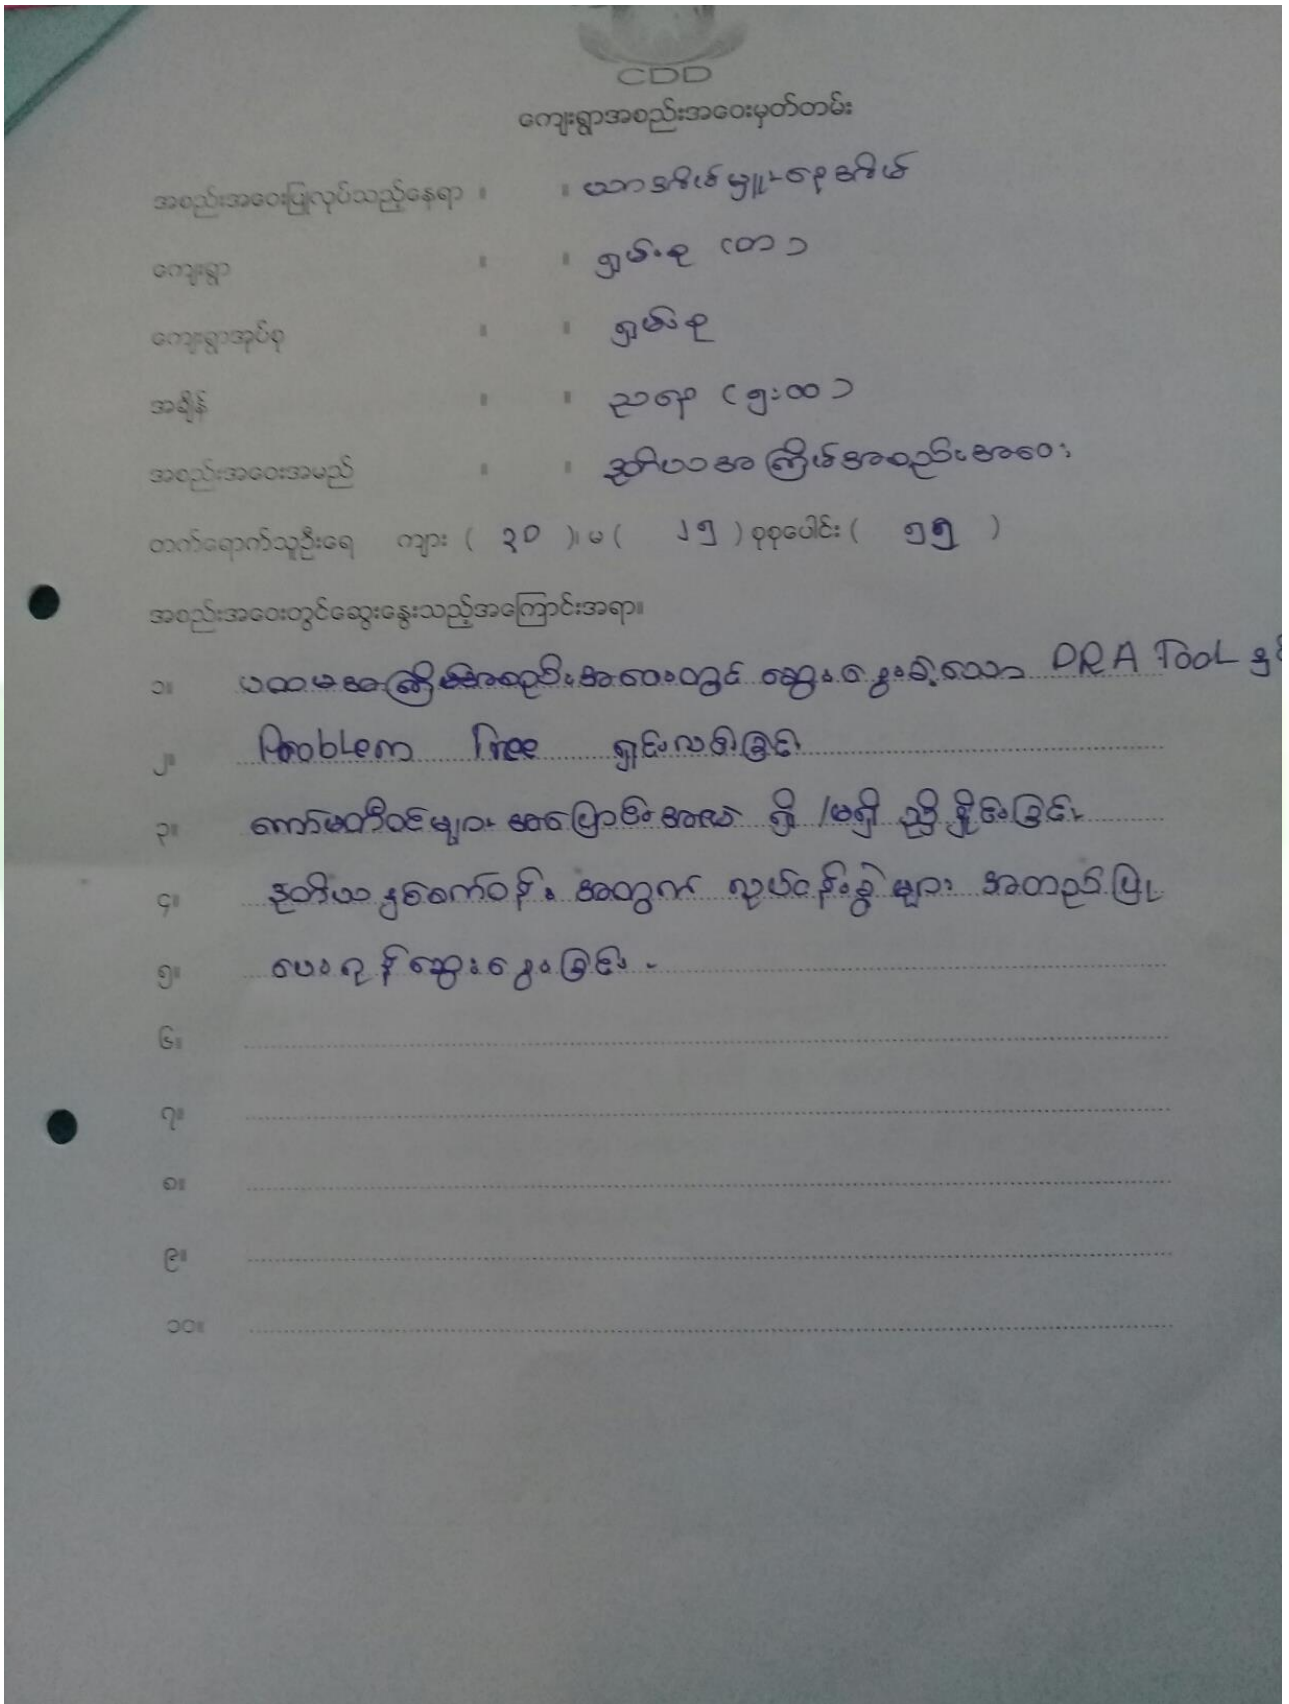 CDD
ကျေးရွာအစည်းအဝေးမှတ်တမ်း
အစည်းအဝေးပြုလုပ်သည့်နေရာ ။ ။ ယာအိမ်မှူးနေအိမ်
ကျေးရွာ ။ ။ ရှမ်းစု (တ)
ကျေးရွာအုပ်စု ။ ။ ရှမ်းစု
အချိန် ။ ။ ညနေ (၅:ထ)
အစည်းအဝေးအမည် ။ ။ ဒုတိယအကြိမ်အစည်းအဝေး
တက်ရောက်သူဦးရေ ကျား ( ၃၀ )၊ မ ( ၂၅ ) စုစုပေါင်း ( ၅၅ )
အစည်းအဝေးတွင်ဆွေးနွေးသည့်အကြောင်းအရာ။
၁။ ပထမအကြိမ်အစည်းအဝေးတွင် ဆွေးနွေးခဲ့သော DRA Tool
၂။ Problem Tree ရှင်းလင်းခြင်း
၃။ ကော်မတီဝင်များ အပြောင်းအလဲ ရှိ /မရှိ ညှိနှိုင်းခြင်း
၄။ ဒုတိယနှစ်စက်ဝန်း အတွက် လုပ်ငန်းခွဲများ အတည်ပြု
၅။ ပေးရန်ဆွေးနွေးခြင်း
၆။
၇။
၈။
၉။
၁၀။